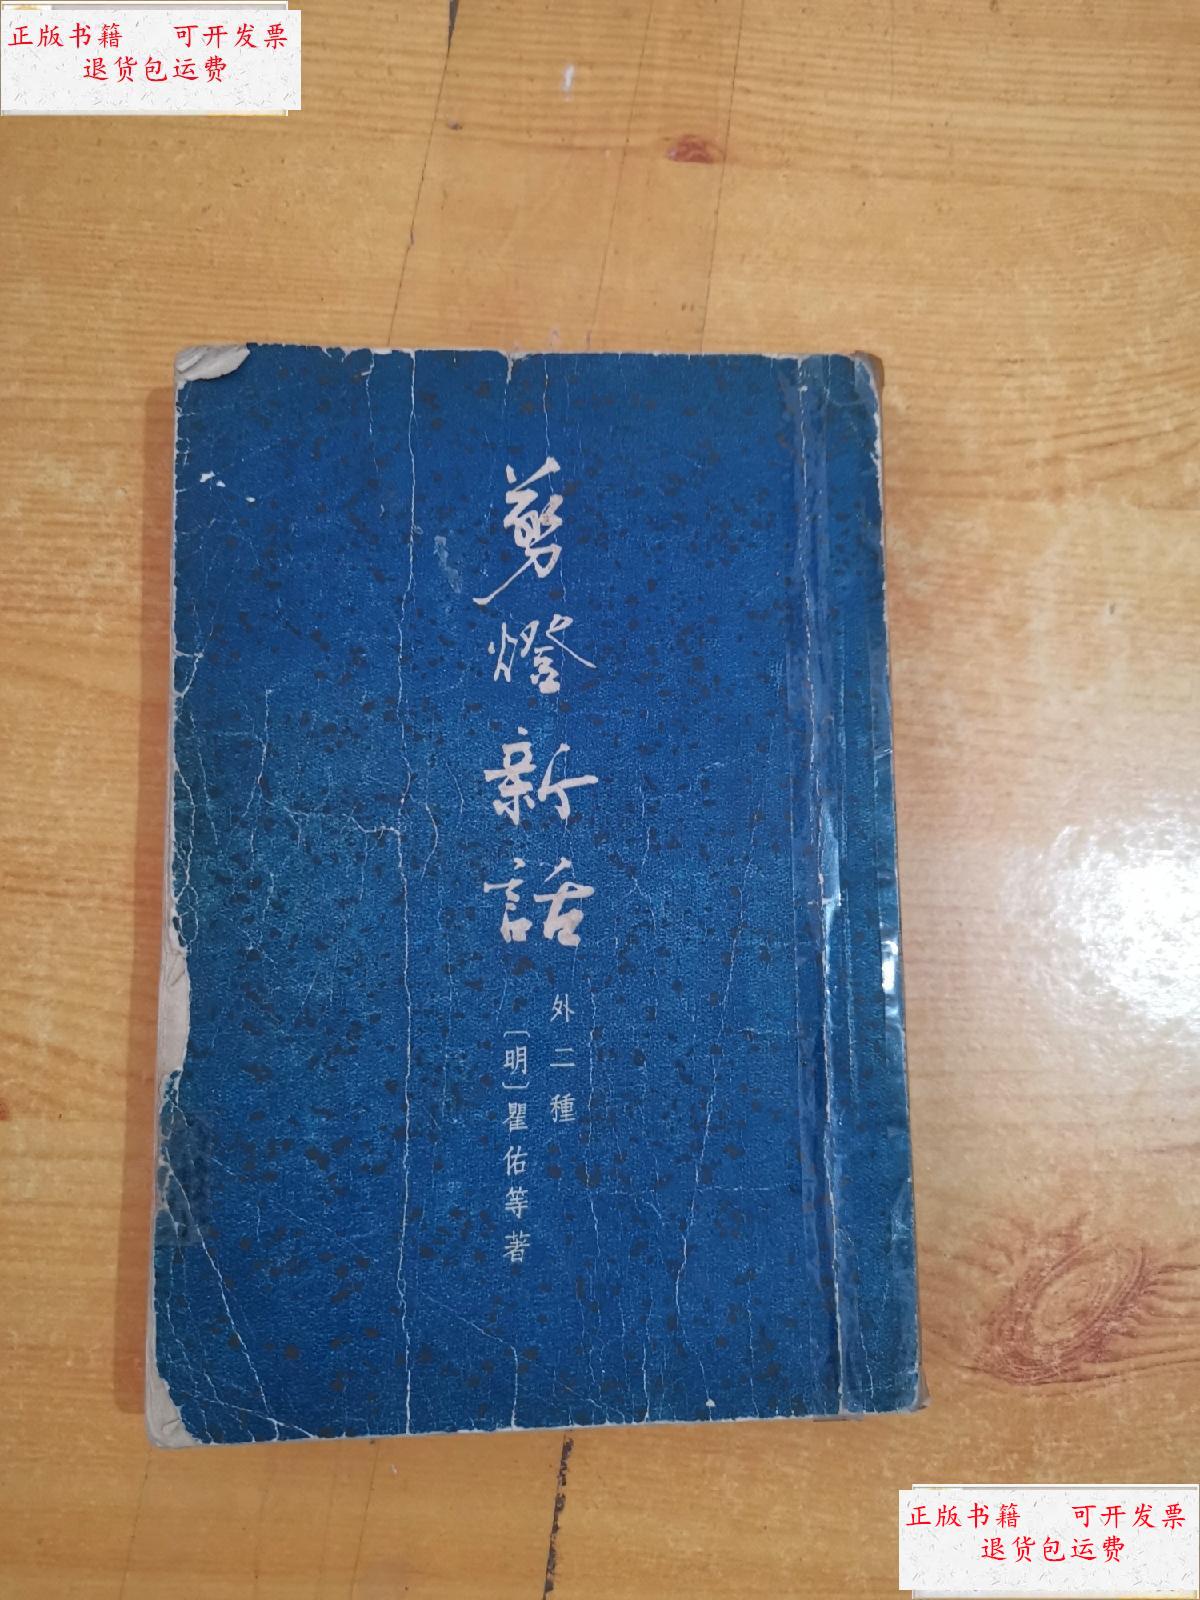 正版书籍 可开发票
退货包运费
剪燈新話
外二種
〔明〕瞿佑等著
正版书籍 可开发票
退货包运费